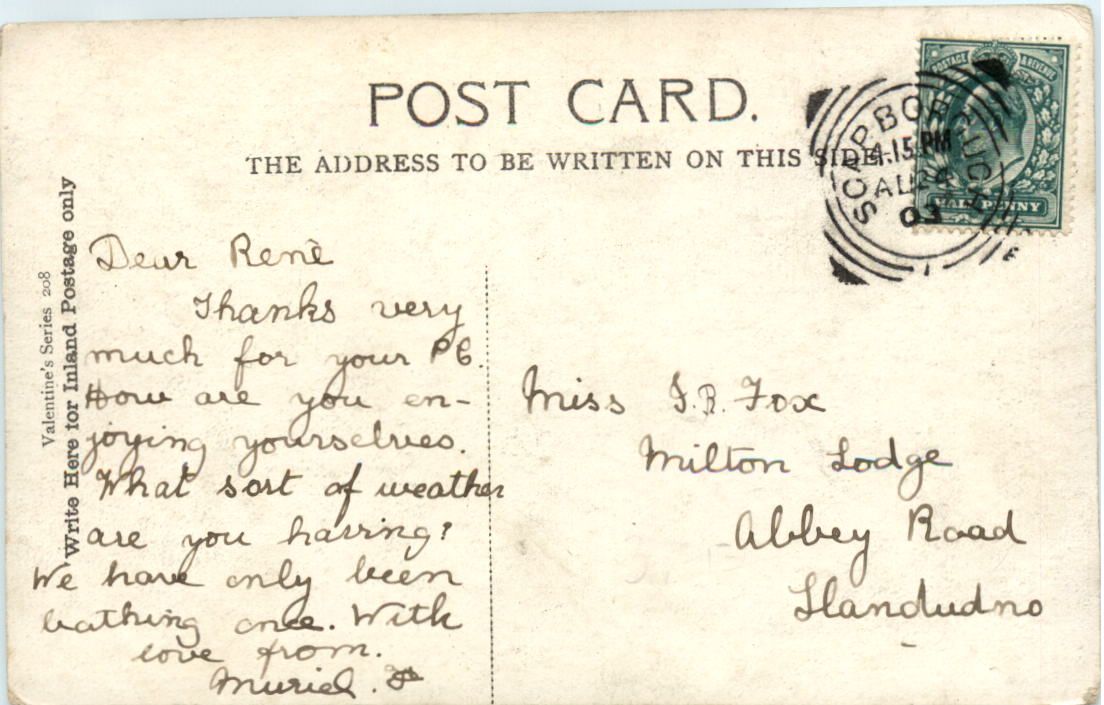 POST CARD.
THE ADDRESS TO BE WRITTEN ON THIS SIDE.
POSTAGE & REVENUE
HALF PENNY
SCARBOROUGH
4.15 PM
AU
03
Valentine's Series 208
Write Here for Inland Postage only
Dear Renè
Thanks very
much for your PC.
How are you en-
joying yourselves.
What sort of weather
are you having?
We have only been
bathing once. With
love from.
Muriel.
Miss I.R. Fox
Milton Lodge
Abbey Road
Llandudno